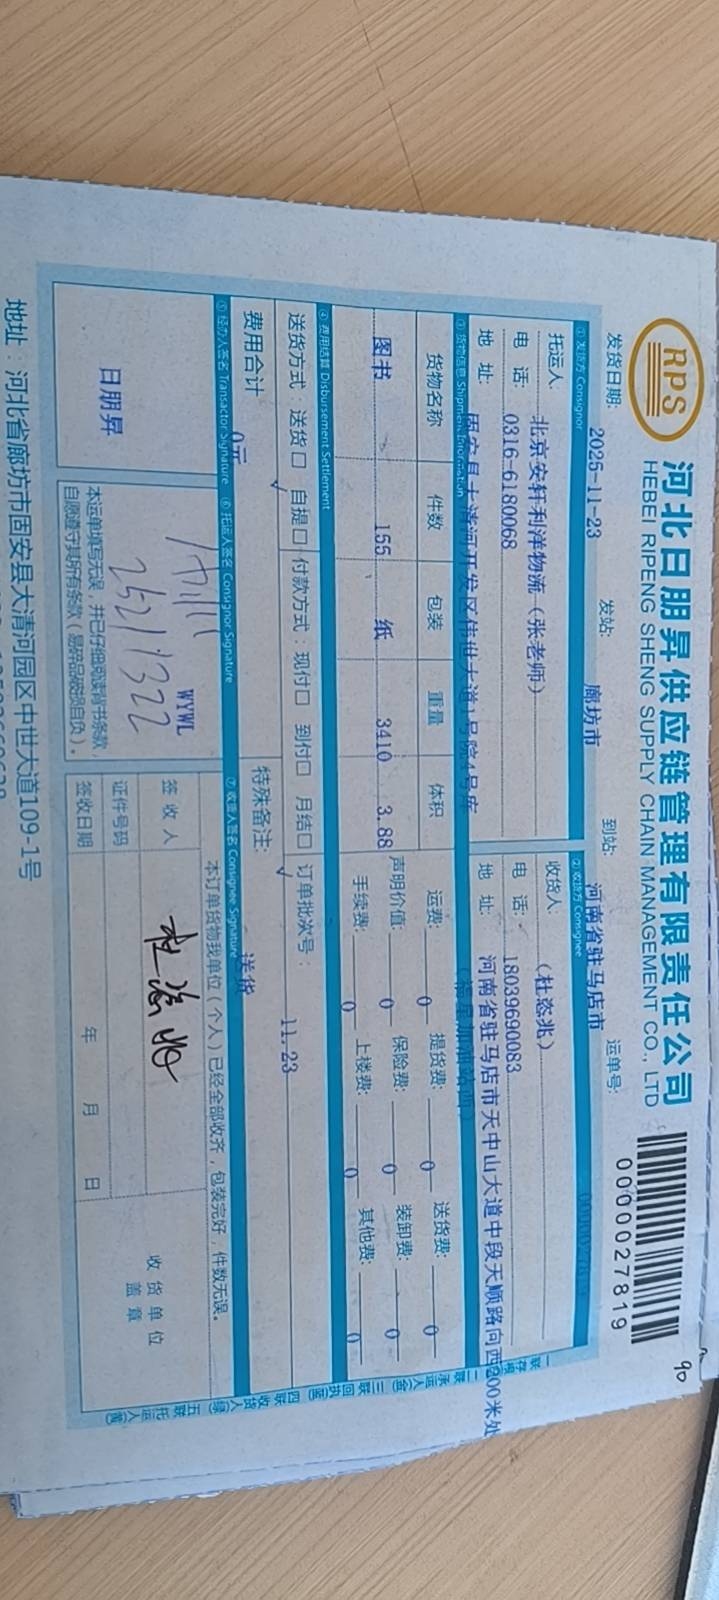 RPS
河北日朋昇供应链管理有限责任公司
HEBEI RIPENG SHENG SUPPLY CHAIN MANAGEMENT CO., LTD
0000027819
90
发货日期: 2025-11-23 发站: 廊坊市 到站: 河南省驻马店市 运单号:
①发货方 Consignor ②收货方 Consignee
托运人: 北京安轩利洋物流（张老师） 收货人: （杜恣兆）
电 话: 0316-6180068 电 话: 18039690083
地 址: 固安县大清河开发区伟世大道1号院4号库 地 址: 河南省驻马店市天中山大道中段天顺路向西200米处
（福星加油站西）
③货物信息 Shipment Information
货物名称 件数 包装 重量 体积 运费: 0 提货费: 0 送货费: 0
图书 155 纸 3410 3.88 声明价值: 0 保险费: 0 装卸费: 0
手续费: 0 上楼费: 0 其他费: 0
④费用结算 Disbursement Settlement
送货方式: 送货□ 自提□ 付款方式: 现付□ 到付□ 月结□ 订单批次号: 11.23
√ √
费用合计 0元 特殊备注: 送货
⑤经办人签名 Transactor Signature ⑥托运人签名 Consignor Signature ⑦收货人签名 Consignee Signature
日朋昇
WYWL
本运单填写无误，并已仔细阅读背书条款，
自愿遵守其所有条款（易碎品破损自负）。
本订单货物我单位（个人）已经全部收齐，包装完好，件数无误。
签 收 人
证件号码
签收日期 年 月 日
收货单位
盖 章
一联存根
二联承运人(金)
三联回执(蓝)
四联收货人(绿)
五联托运人(黄)
地址：河北省廊坊市固安县大清河园区中世大道109-1号